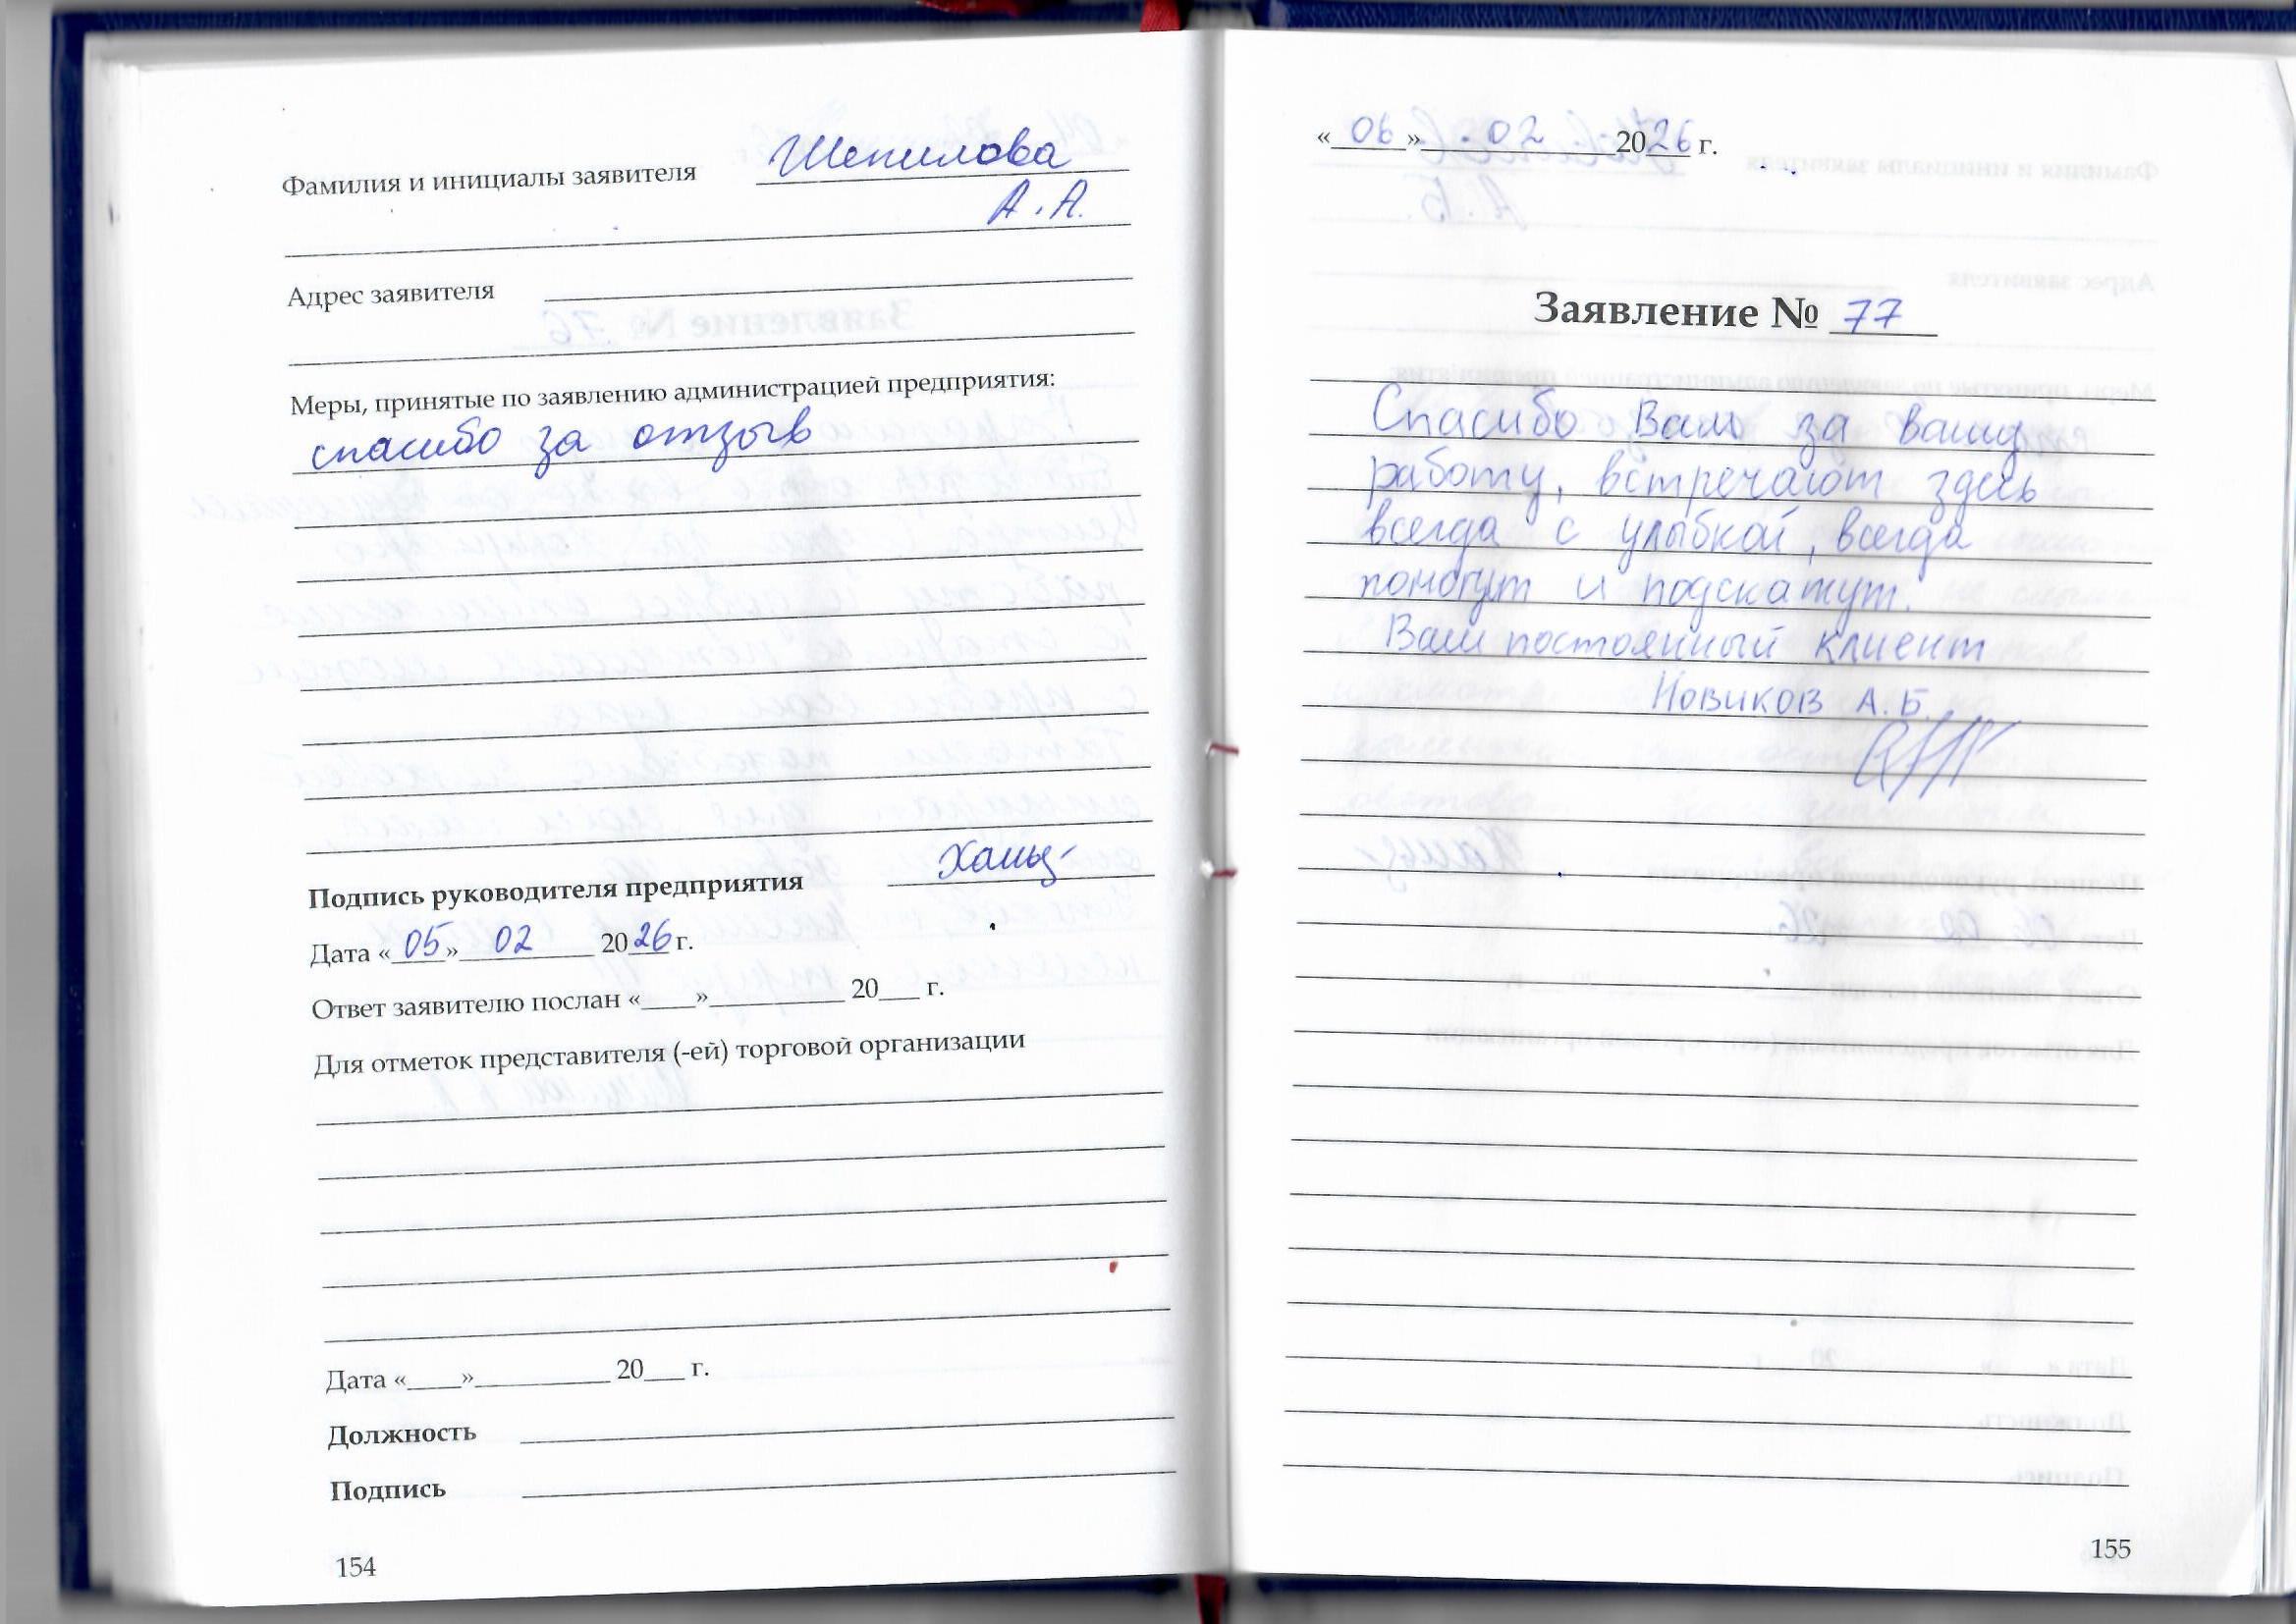 Фамилия и инициалы заявителя Шепилова
А.А.
Адрес заявителя
Меры, принятые по заявлению администрацией предприятия:
спасибо за отзыв
Подпись руководителя предприятия
Дата «05» 02 2026 г.
Ответ заявителю послан «____»__________ 20___ г.
Для отметок представителя (-ей) торговой организации
Дата «____»__________ 20___ г.
Должность
Подпись
154
«06» . 02 2026 г.
Заявление № 77
Спасибо Вам за вашу
работу, встречают здесь
всегда с улыбкой, всегда
помогут и подскажут.
Ваш постоянный клиент
Новиков А.Б.
155